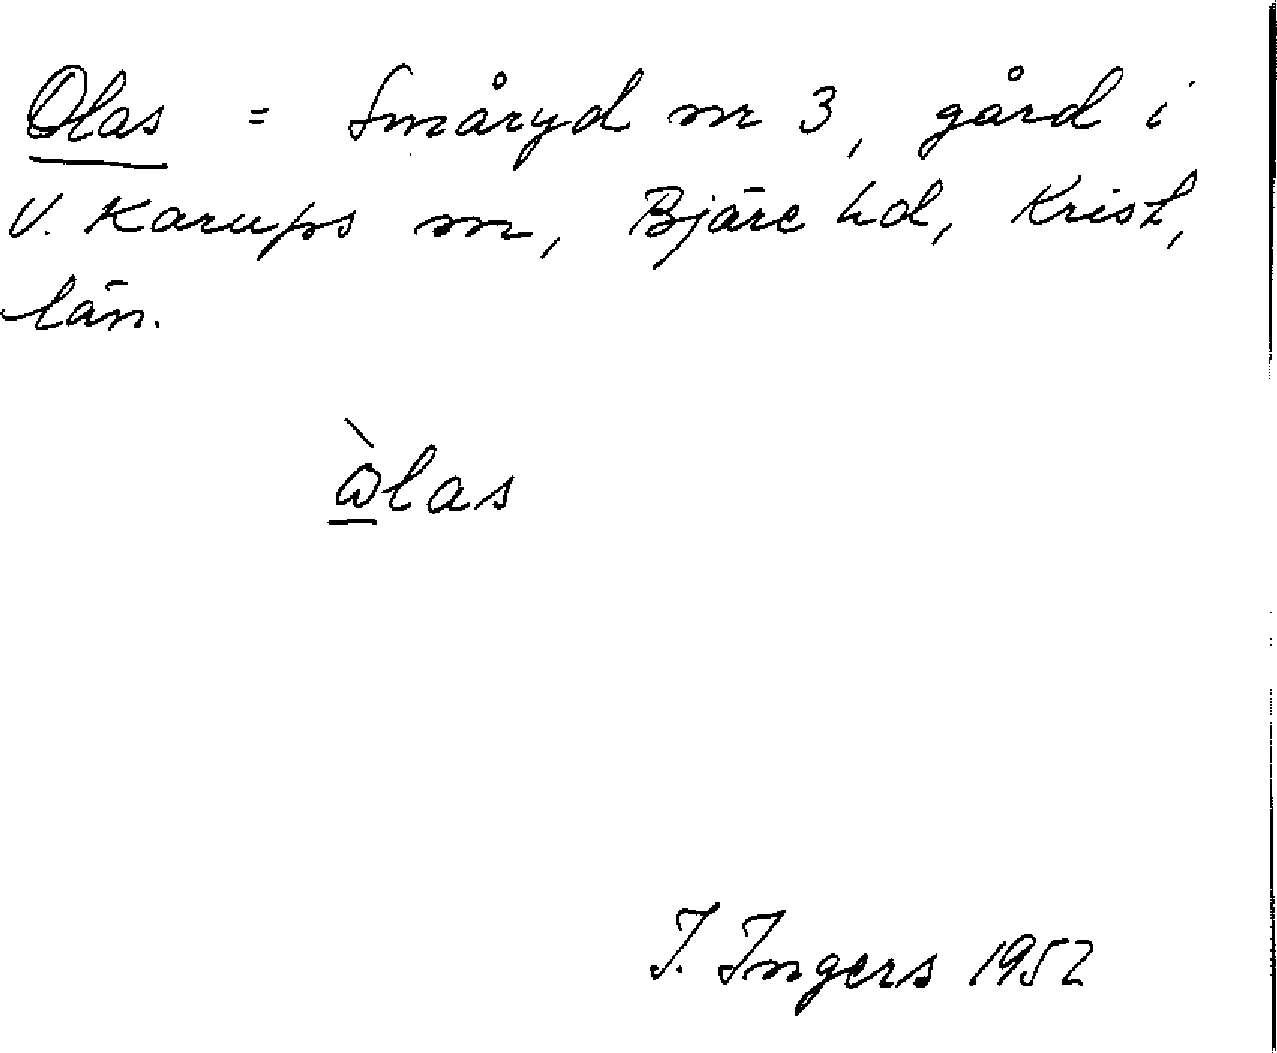 Olas = Småryd nr 3, gård i
V. Karups sn, Bjäre hd, Krist,
län.
ὼ̱las
I. Ingers 1952